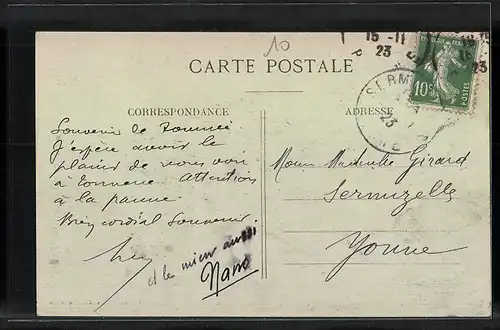 10
15-11
23
CARTE POSTALE
CORRESPONDANCE
ADRESSE
SERM
23
10c
POSTES
Souvenir de
J'espère avoir le
plaisir de vous voir
à Tonnerre Attention
à la panne
Bien cordial Souvenir.
et le mien aussi
Nano
Girard
Sermizelles
Yonne